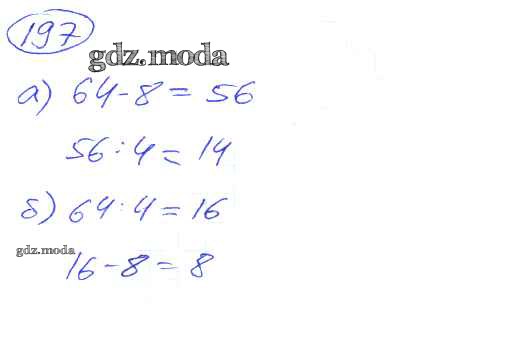 197
gdz.moda
а) 64 - 8 = 56
56 : 4 = 14
б) 64 : 4 = 16
gdz.moda
16 - 8 = 8